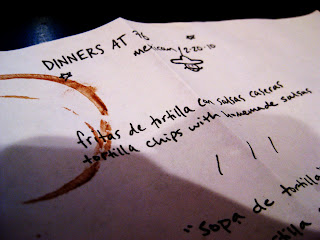 DINNERS AT 75
mexican 12-20-10
fritas de tortilla con salsas caseras
tortilla chips with homemade salsas
"sopa de tortilla"
tortilla